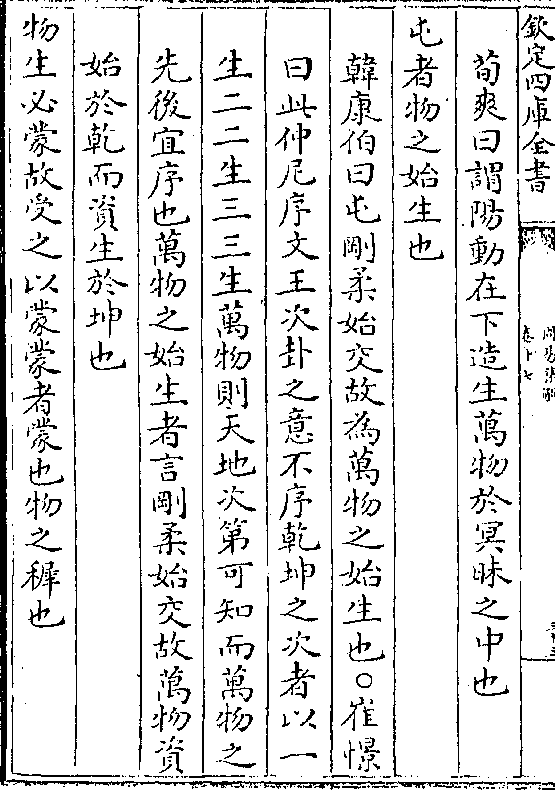 欽定四庫全書
周易集解
卷十七
荀爽曰謂陽動在下造生萬物於冥昧之中也
屯者物之始生也
韓康伯曰屯剛柔始交故為萬物之始生也○崔憬
曰此仲尼序文王次卦之意不序乾坤之次者以一
生二二生三三生萬物則天地次第可知而萬物之
先後宜序也萬物之始生者言剛柔始交故萬物資
始於乾而資生於坤也
物生必蒙故受之以蒙蒙者蒙也物之穉也